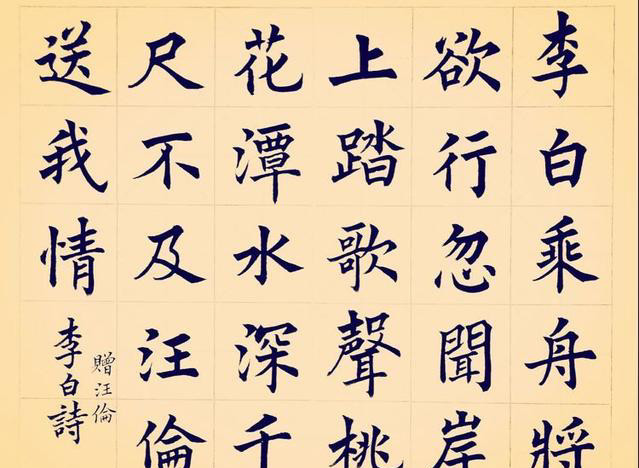 李白乘舟將
欲行忽聞岸
上踏歌聲桃
花潭水深千
尺不及汪倫
送我情
贈汪倫
李白詩